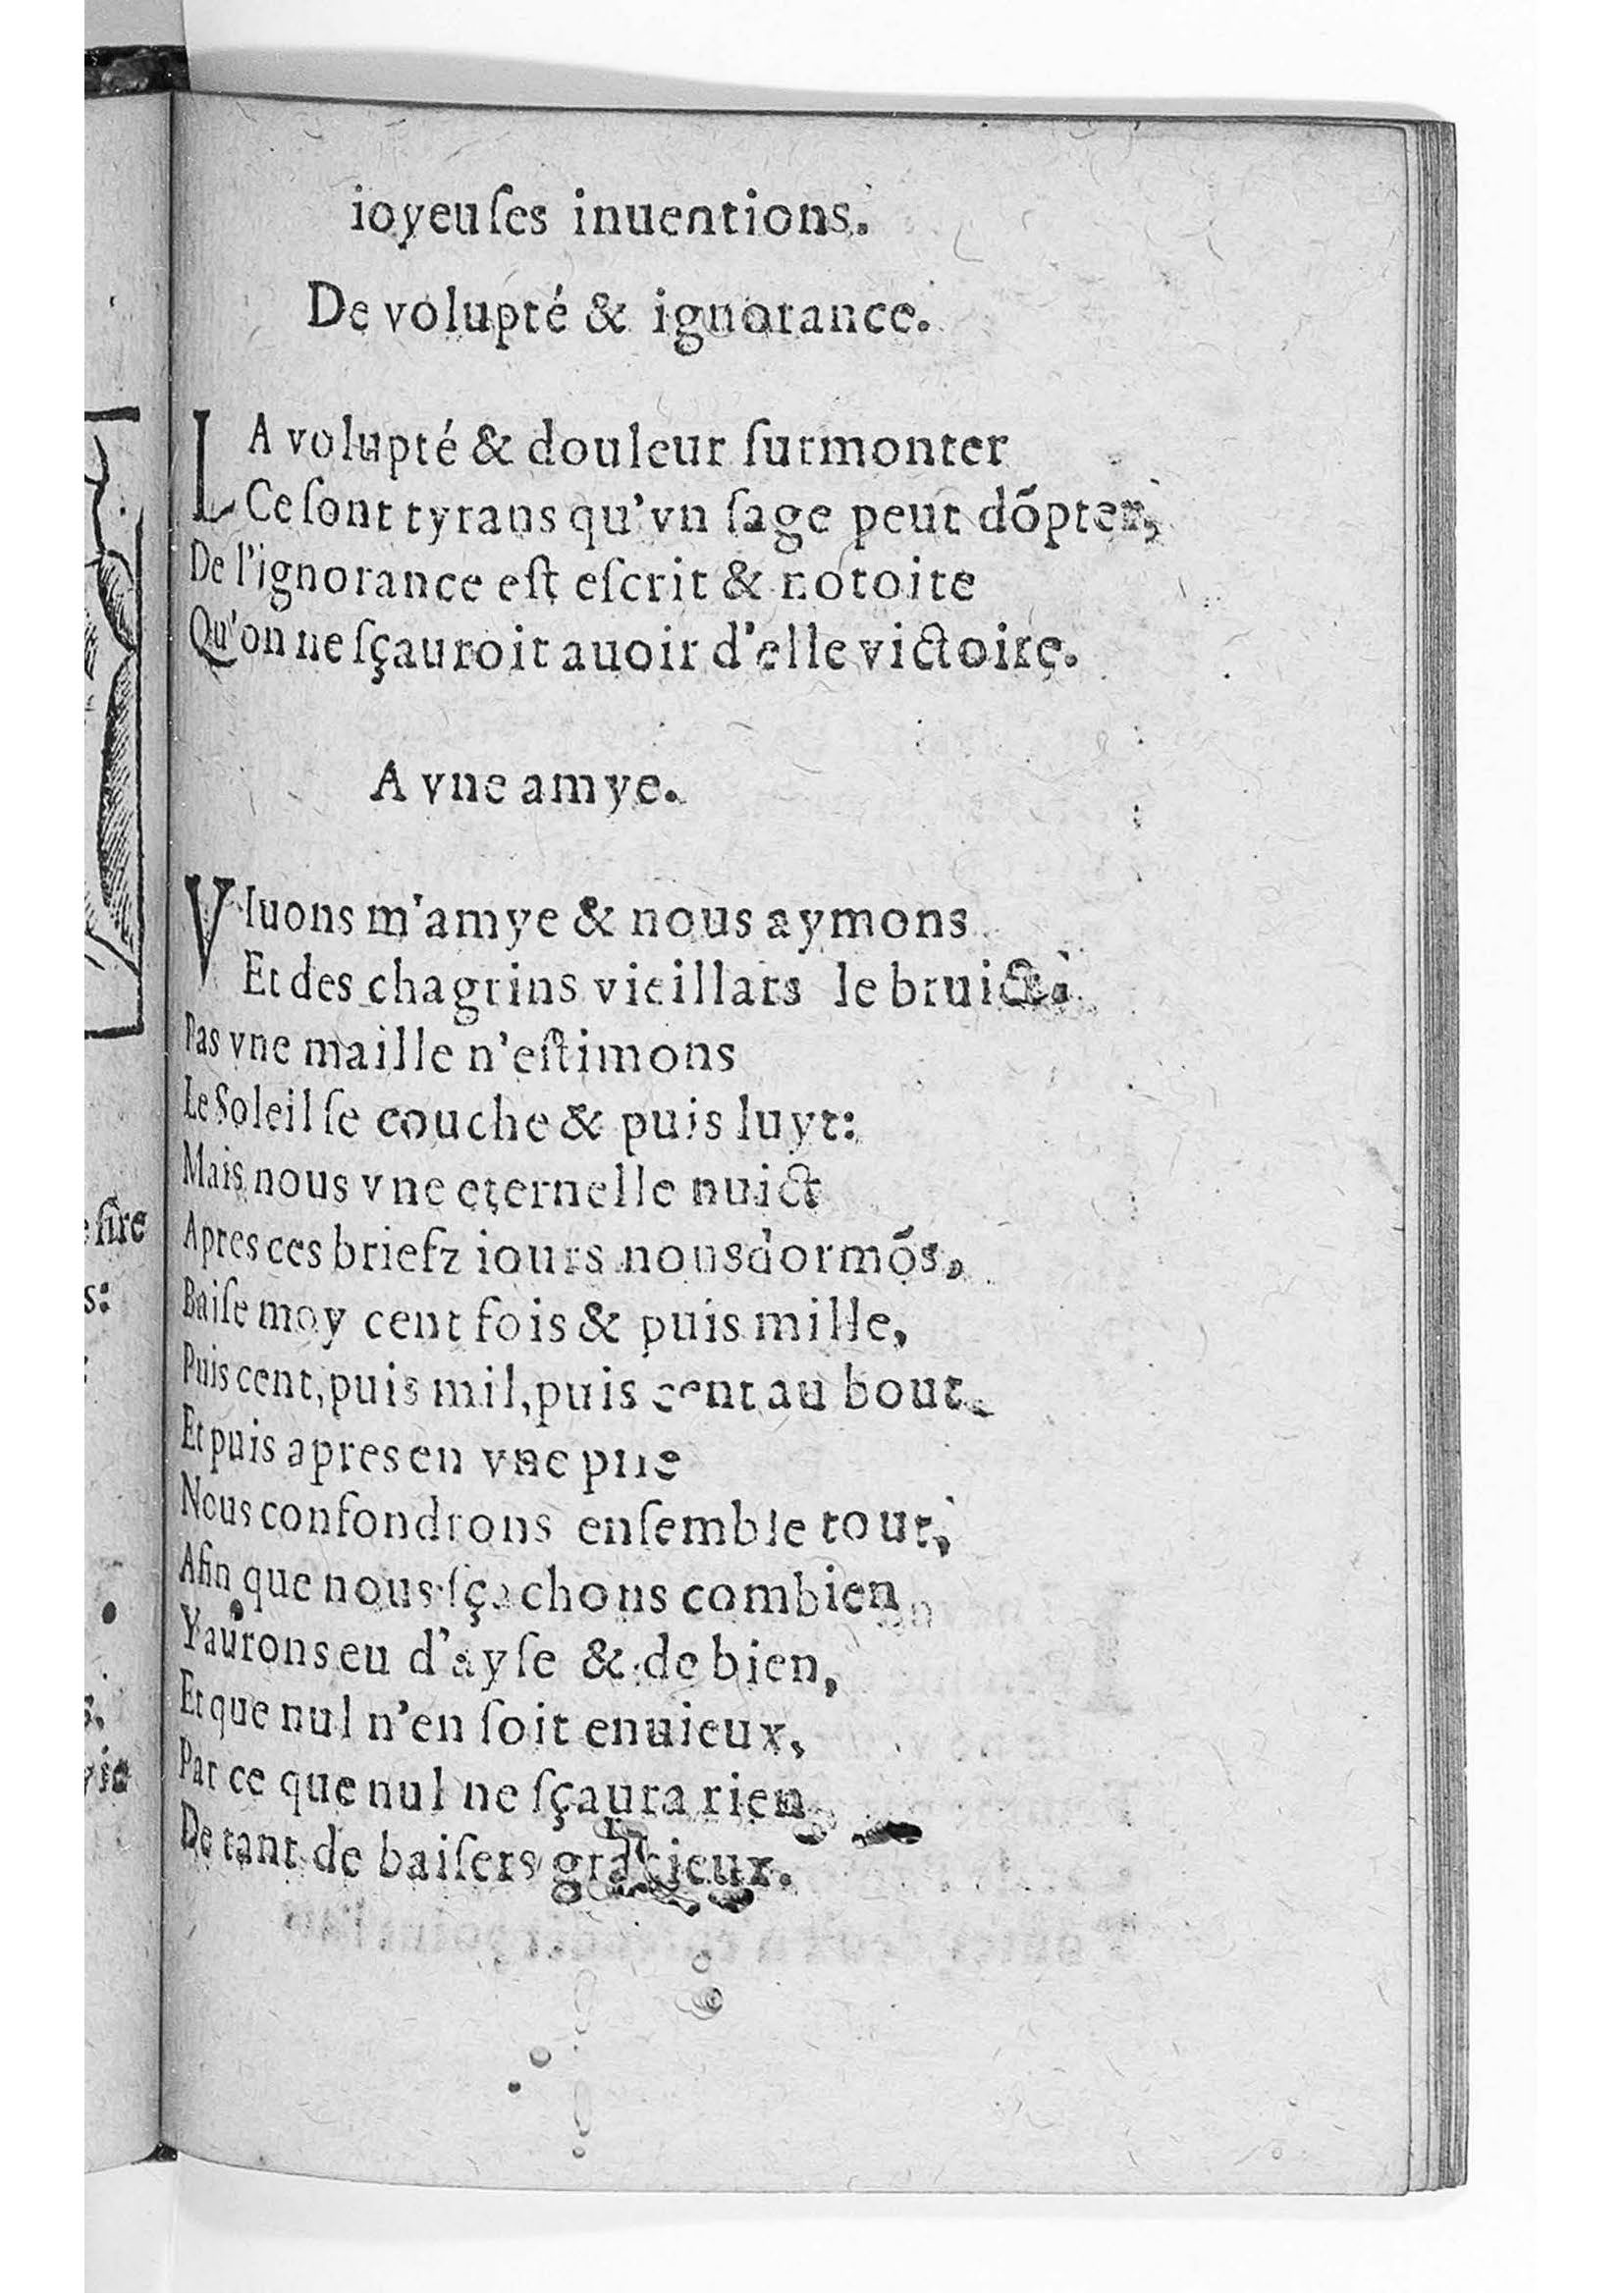 ioyeuſes inuentions.
De volupté & ignorance.
LA volupté & douleur ſurmonter
Ce ſont tyrans qu'vn ſage peut dõpter,
De l'ignorance eſt eſcrit & notoire
Qu'on ne ſçauroit auoir d'elle victoire.
A vne amye.
VIuons m'amye & nous aymons
Et des chagrins vieillars le bruict
Pas vne maille n'eſtimons
Le Soleil ſe couche & puis luyt:
Mais nous vne eternelle nuict
Apres ces briefz iours nous dormõs,
Baiſe moy cent fois & puis mille,
Puis cent, puis mil, puis cent au bout
Et puis apres en vne
Nous confondrons enſemble tout,
Afin que nous ſçachons combien
Y aurons eu d'ayſe & de bien,
Et que nul n'en ſoit enuieux,
Par ce que nul ne ſçaura rien
De tant de baiſers gracieux.
ſire
s:
s.